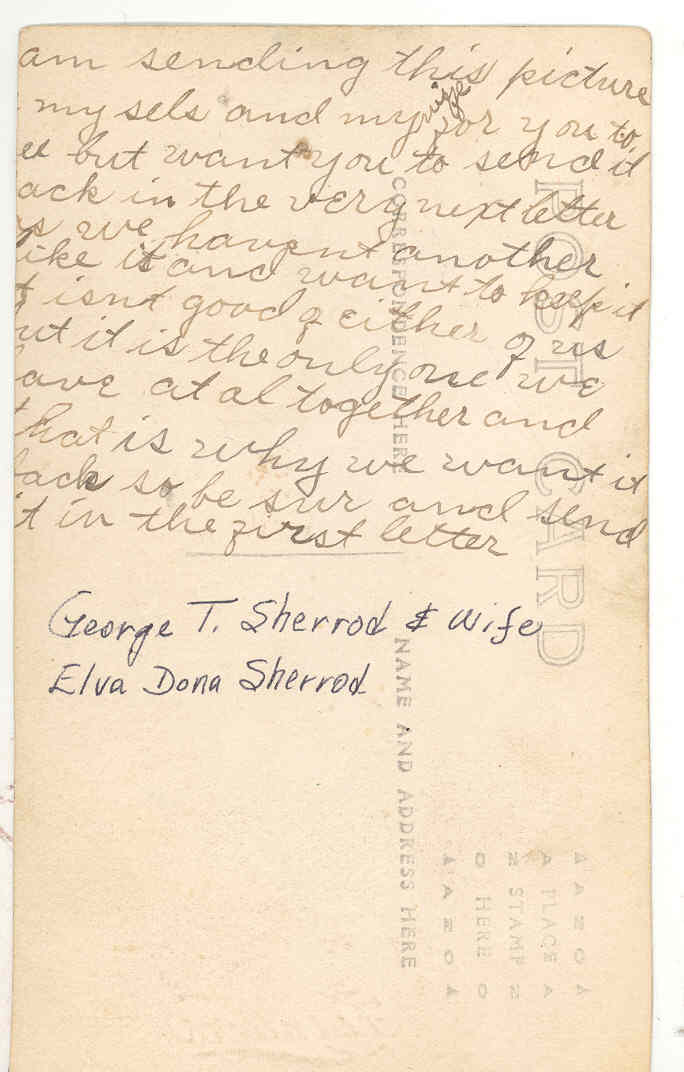 am sending this picture
my sels and my wife for you to
ee but want you to send it
ack in the very next letter
s we havent another
ike it and want to keep it
t isnt good of either of us
ut it is the only one we
ave at al together and
that is why we want it
back so be sur and send
it in the first letter
George T. Sherrod & Wife
Elva Dona Sherrod
POST CARD
CORRESPONDENCE HERE
NAME AND ADDRESS HERE
AZOA
PLACE
STAMP
HERE
AZOA